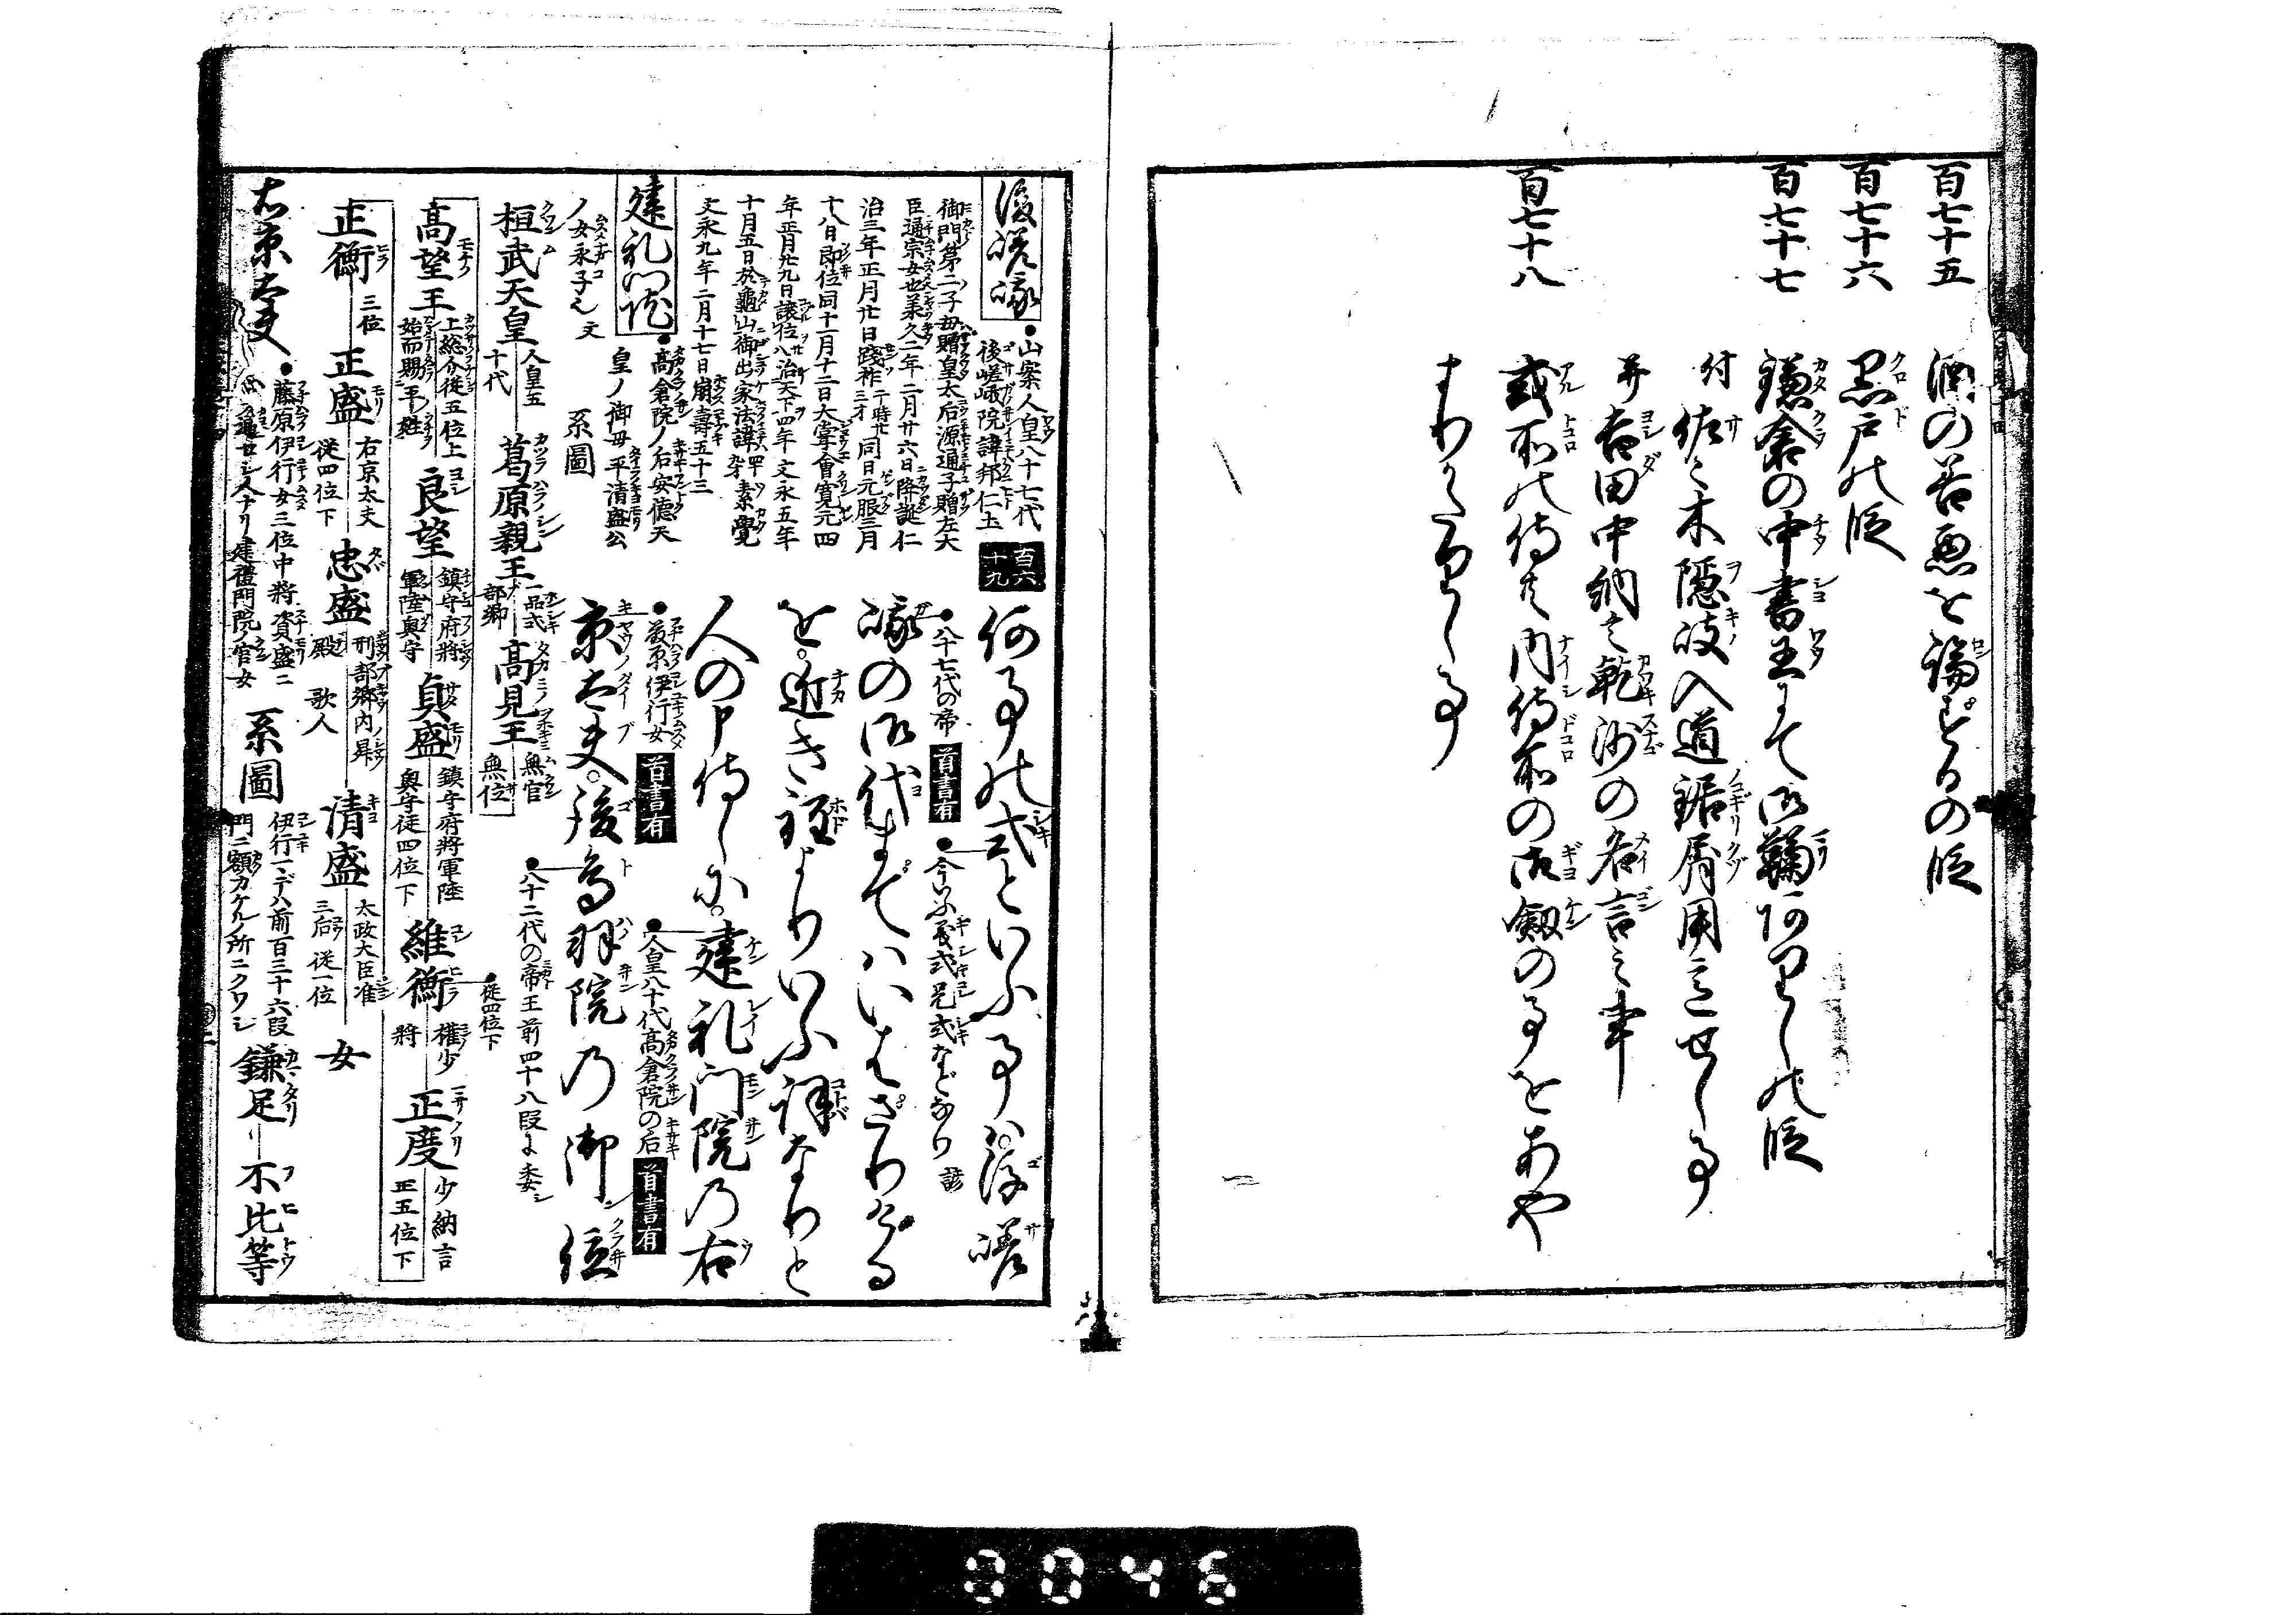 百七十五
酒の善悪を論ずるの段
百七十六
黒戸の段
百七十七
鎌倉の中書王にて御鞠ありしの段
付佐々木隠岐入道鋸屑用意せし事
并吉田中納言乾沙の名言之事
百七十八
或所の侍共内侍所の御劔の事をあや
まりていひし事
後嵯峨
●山案人皇八十七代
後嵯峨院諱邦仁土
御門第二子母贈皇太后源通子贈左大
臣通宗女也承久二年二月廿六日降誕仁
治三年正月廿日踐祚于時廿三才同日元服三月
十八日即位同十一月十二日大甞會寛元四
年正月廿九日譲位八治天下四年文永五年
十月五日於亀山御出家法諱素覺
文永九年二月十七日崩壽五十三
建礼門院
●高倉院ノ后安徳天
皇ノ御母平清盛公
ノ女永子也文
系圖
桓武天皇
人皇五
十代
葛原親王
一品式
部卿
高見王
無官
無位
高望王
上総介従五位上
始而賜平姓
良望
鎮守府將
軍陸奥守
貞盛
鎮守府將軍陸
奥守従四位下
維衡
●従四位下
権少
將
正度
少納言
正五位下
正衡
三位
正盛
右京太夫
従四位下
忠盛
刑部卿内昇
殿 歌人
清盛
太政大臣准
三后従一位
女
右京大夫
●藤原伊行女三位中將資盛ニ
遇セシ人ナリ建禮門院ノ官女
系圖
伊行マデハ前百三十六段
門ニ額カケルノ所ニクワシ
鎌足
不比等
百六十九
何事の式といふ事は後嵯
●八十七代の帝
首書有
●今いふ
式などなり 諺
峨の御代まではいはざりけるを
近き程よりいふ詞なりと
人の申侍しに。建礼門院の右
●藤原伊行女
首書有
●人皇八十代高倉院の后
首書有
京大夫。後鳥羽院の御位
●八十二代の帝王前四十八段に委シ